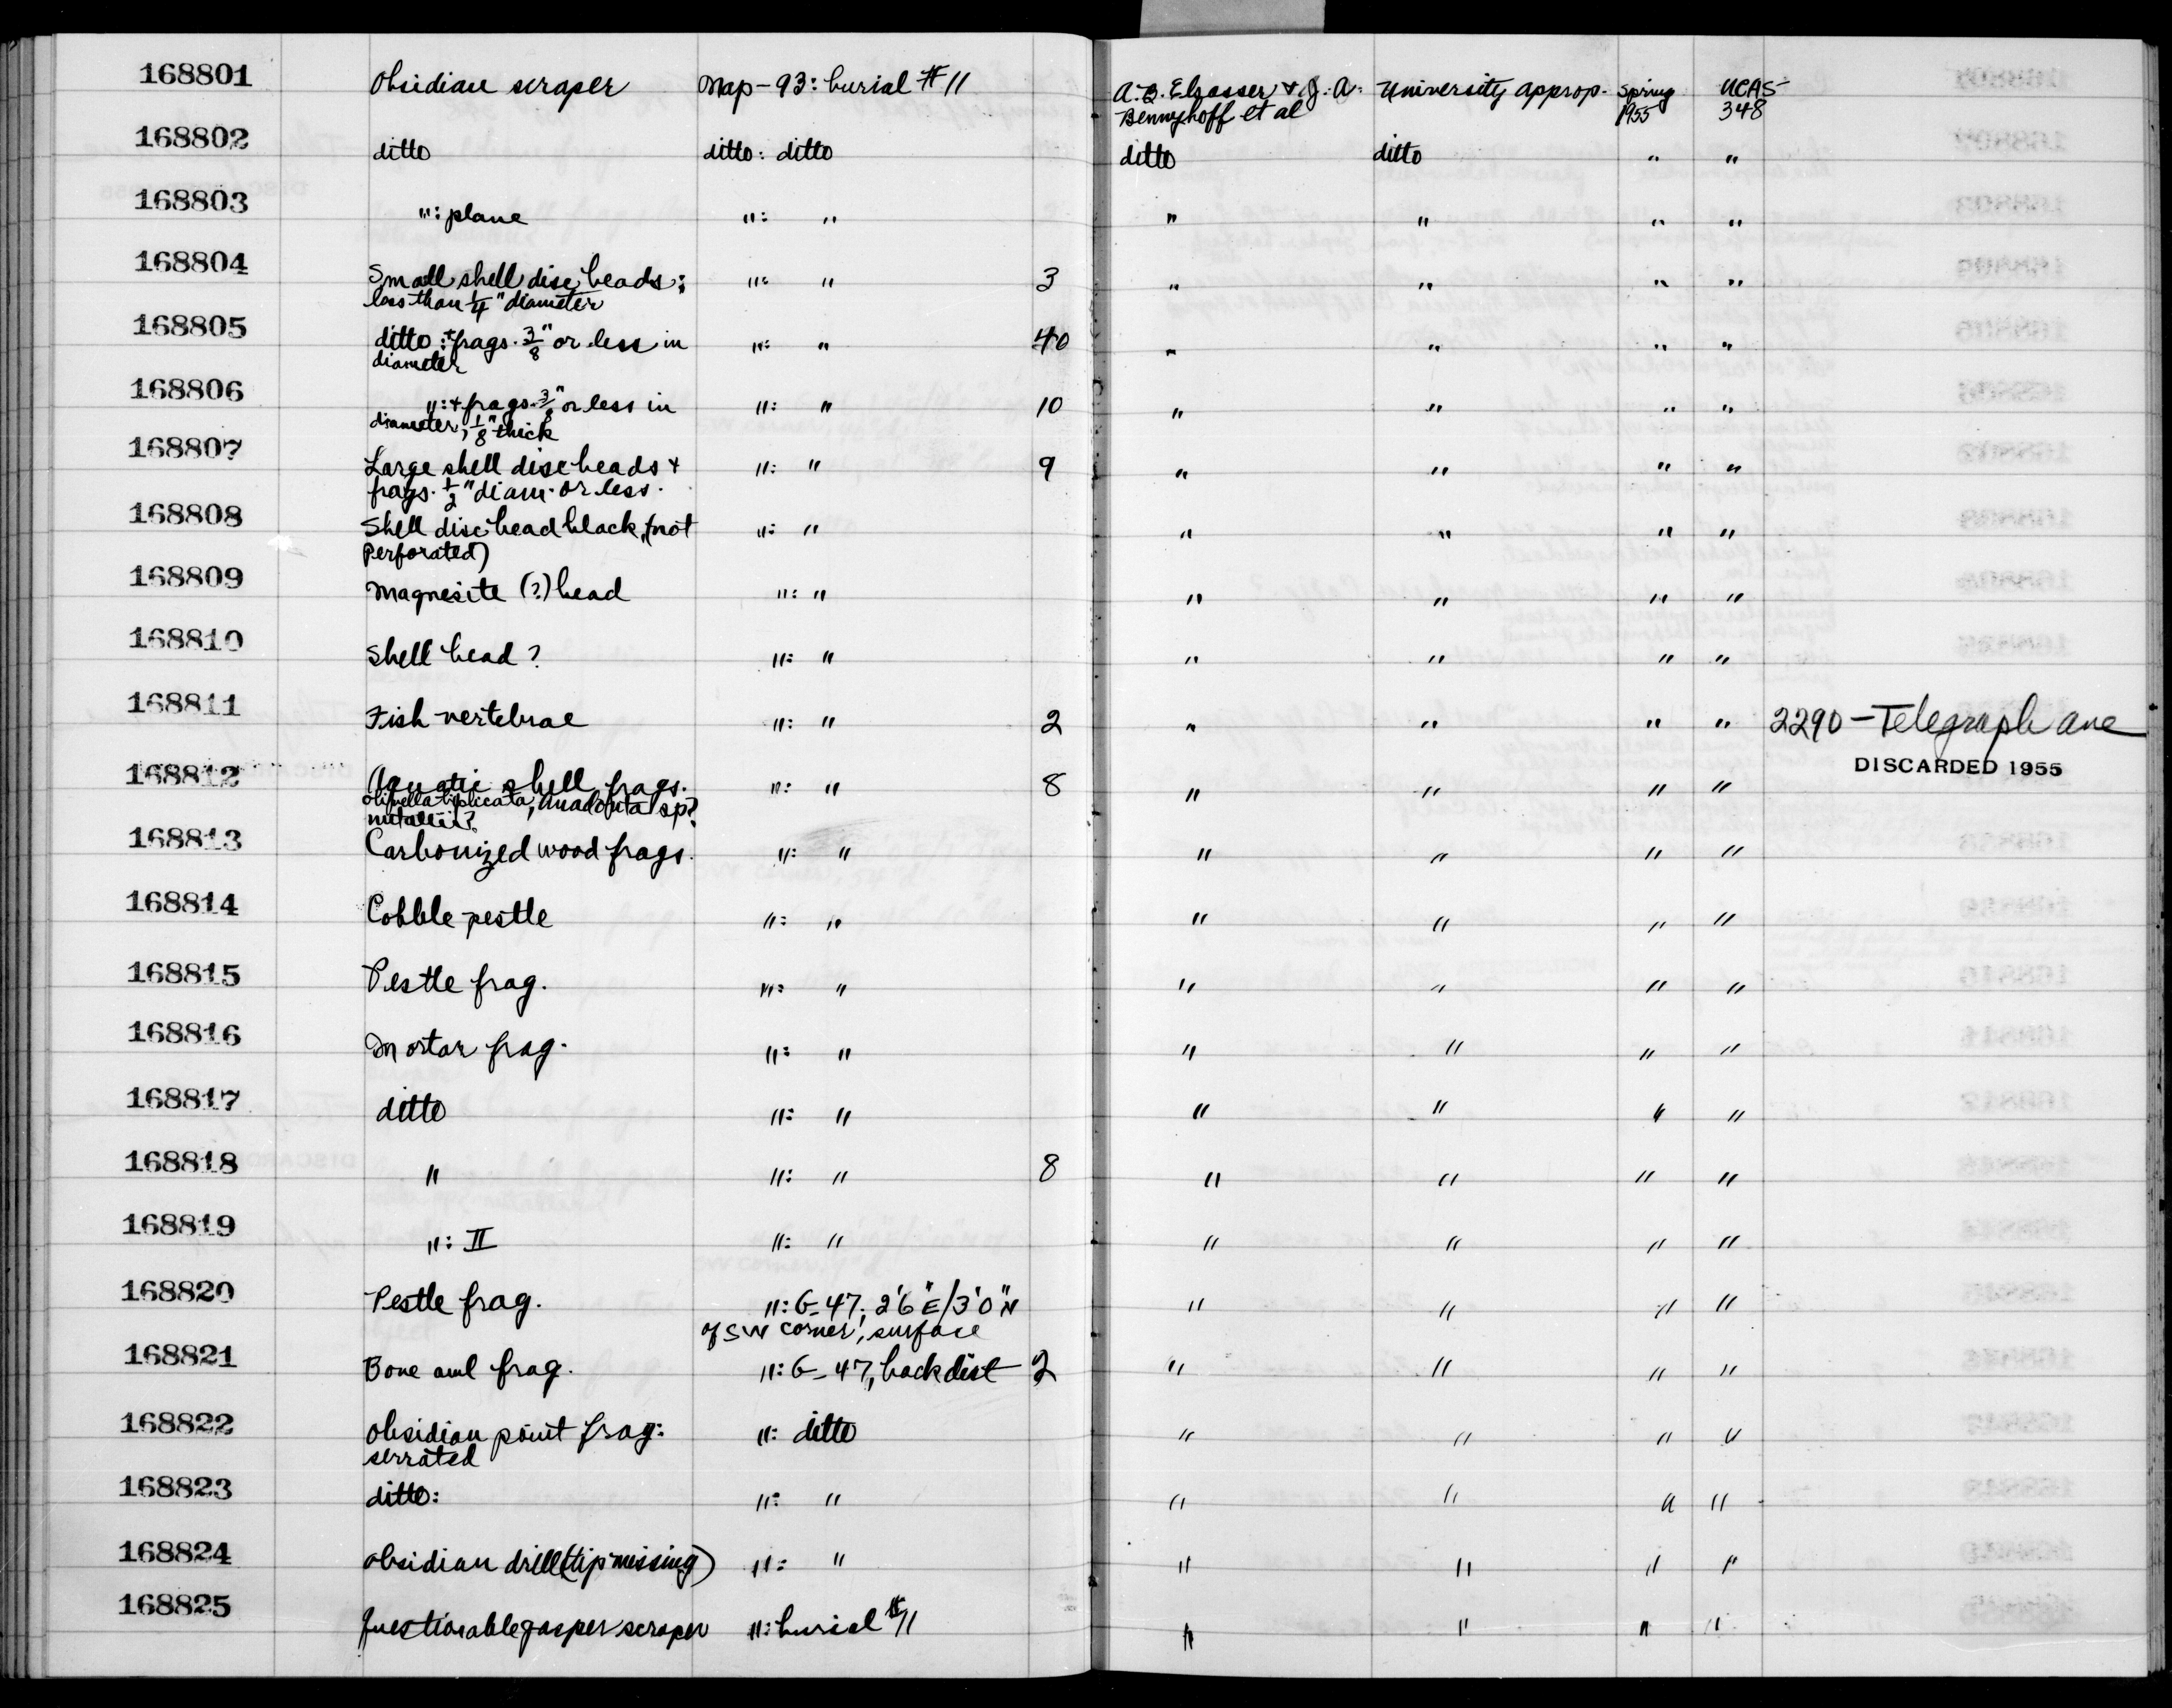 168801 Obsidian scraper Map-93: burial #11 A.B. Elsasser & J.A. University approp. Spring UCAS-
Bennyhoff et al 1955 348
168802 ditto ditto: ditto ditto ditto " "
168803 ": plane ": " " " " "
168804 Small shell disc beads: ": " 3 " " " "
less than 1/4" diameter
168805 ditto: + frags. 3/8" or less in ": " 40 " " " "
diameter
168806 ": + frags. 3/8" or less in ": " 10 " " " "
diameter, 1/8" thick
168807 Large shell disc beads + ": " 9 " " " "
frags. 1/2" diam. or less.
168808 Shell disc bead black, (not ": " " " " "
perforated)
168809 Magnesite (?) bead ": " " " " "
168810 Shell bead? ": " " " " "
168811 Fish vertebrae ": " 2 " " " " 2290-Telegraph ave
168812 Aquatic shell frags. ": " 8 " " " " DISCARDED 1955
olivella biplicata, Anadonta sp?
nutallii?
168813 Carbonized wood frags. ": " " " " "
168814 Cobble pestle ": " " " " "
168815 Pestle frag. ": " " " " "
168816 Mortar frag. ": " " " " "
168817 ditto ": " " " " "
168818 " ": " 8 " " " "
168819 ": II ": " " " " "
168820 Pestle frag. ": G-47; 2'6"E/3'0"N " " " "
of SW corner, surface
168821 Bone awl frag. ": G-47, back dirt 2 " " " "
168822 Obsidian point frag: ": ditto " " " "
serrated
168823 ditto: ": " " " " "
168824 Obsidian drill (tip missing) ": " " " " "
168825 Questionable jasper scraper ": burial #11 " " " "